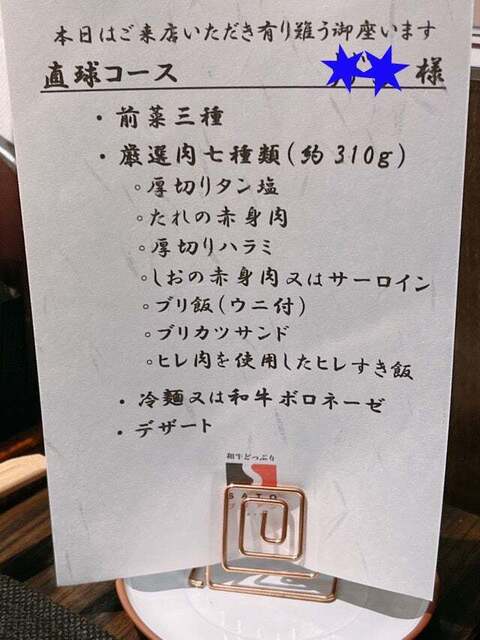 本日はご来店いただき有り難う御座います
直球コース 様
・前菜三種
・厳選肉七種類(約310g)
◦厚切りタン塩
◦たれの赤身肉
◦厚切りハラミ
◦しおの赤身肉又はサーロイン
◦ブリ飯(ウニ付)
◦ブリカツサンド
◦ヒレ肉を使用したヒレすき飯
・冷麺又は和牛ボロネーゼ
・デザート
和牛どっぷり
SATO